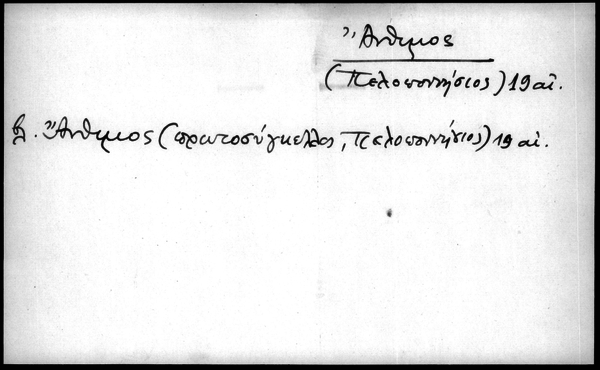 Ἄνθιμος
(Πελοποννήσιος) 19 αἰ.
β. Ἄνθιμος (πρωτοσύγκελλος, Πελοποννήσιος) 19 αἰ.